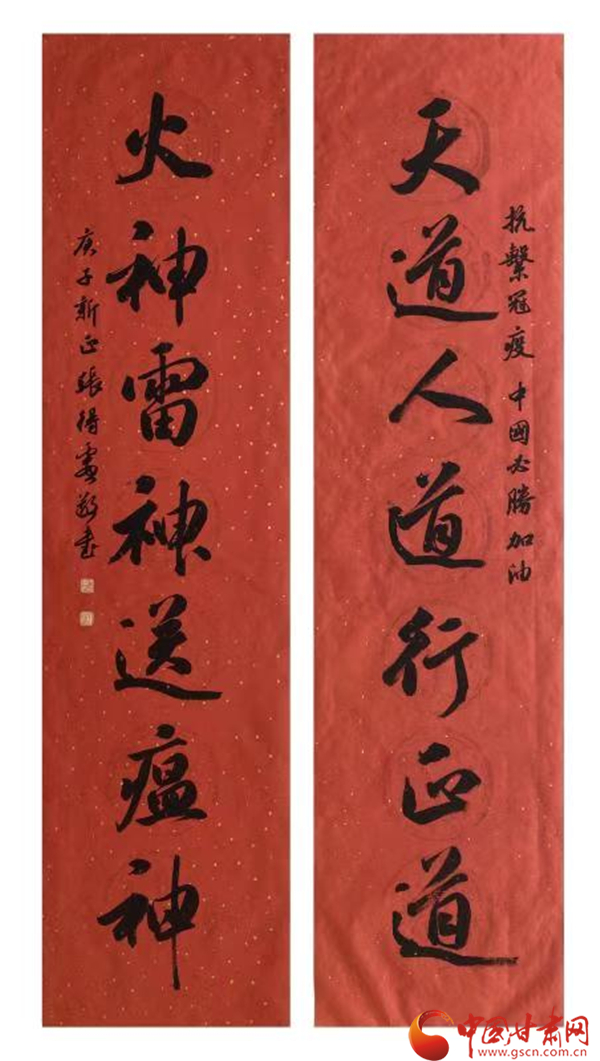 抗繫冠疫 中國必勝加油
天道人道行正道
火神雷神送瘟神
庚子新正張得露敬书
中国甘肃网
www.gscn.com.cn